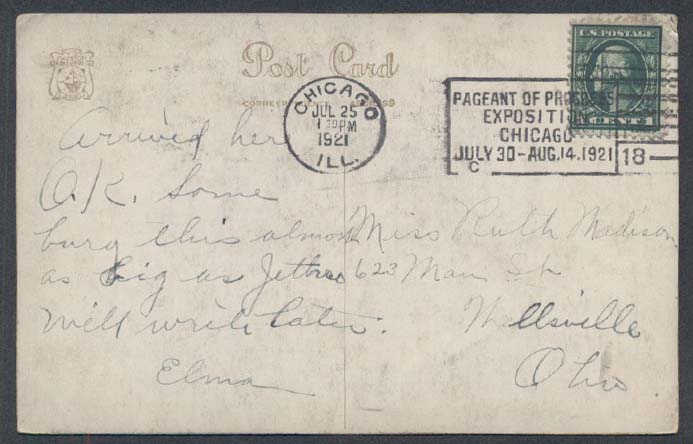 Post Card
CHICAGO
JUL 25
1 30PM
1921
ILL.
PAGEANT OF PROGRESS
EXPOSITION
CHICAGO
JULY 30-AUG.14.1921
C
18
U.S. POSTAGE
CENT 1
arrived here
O.K. Some
burg this almost
as big as Jethro
will write later.
Elma
Miss Ruth Madison
623 Main St
Wellsville
Ohio